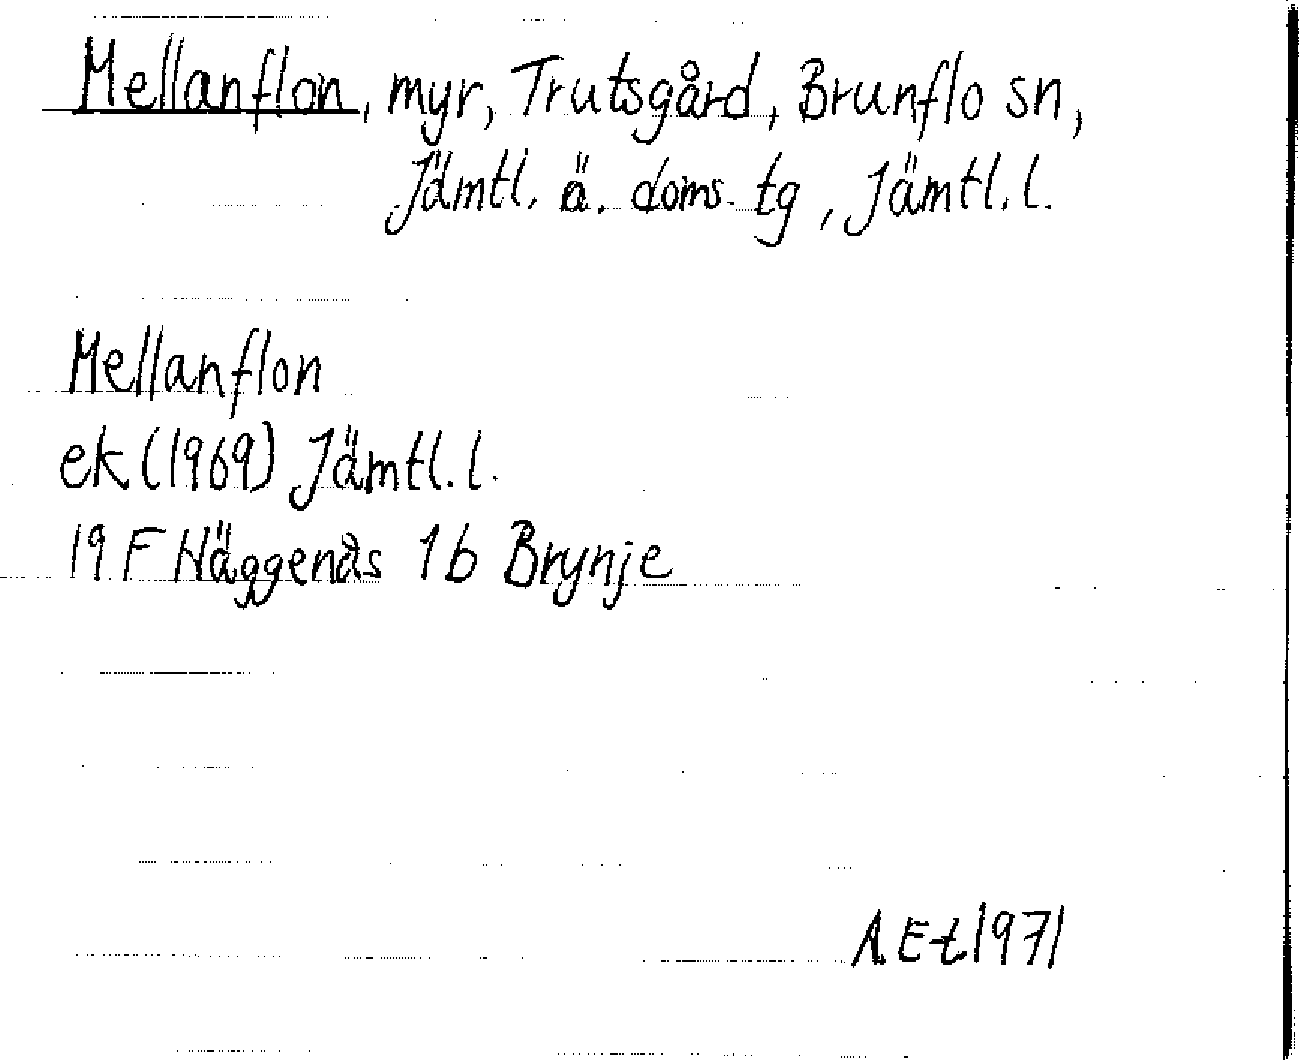 Mellanflon, myr, Trutsgård, Brunflo sn,
Jämtl. ä. doms. tg, Jämtl. l.
Mellanflon
ek (1969) Jämtl. l.
19 F Häggenås 1b Brynje
A. E-t 1971